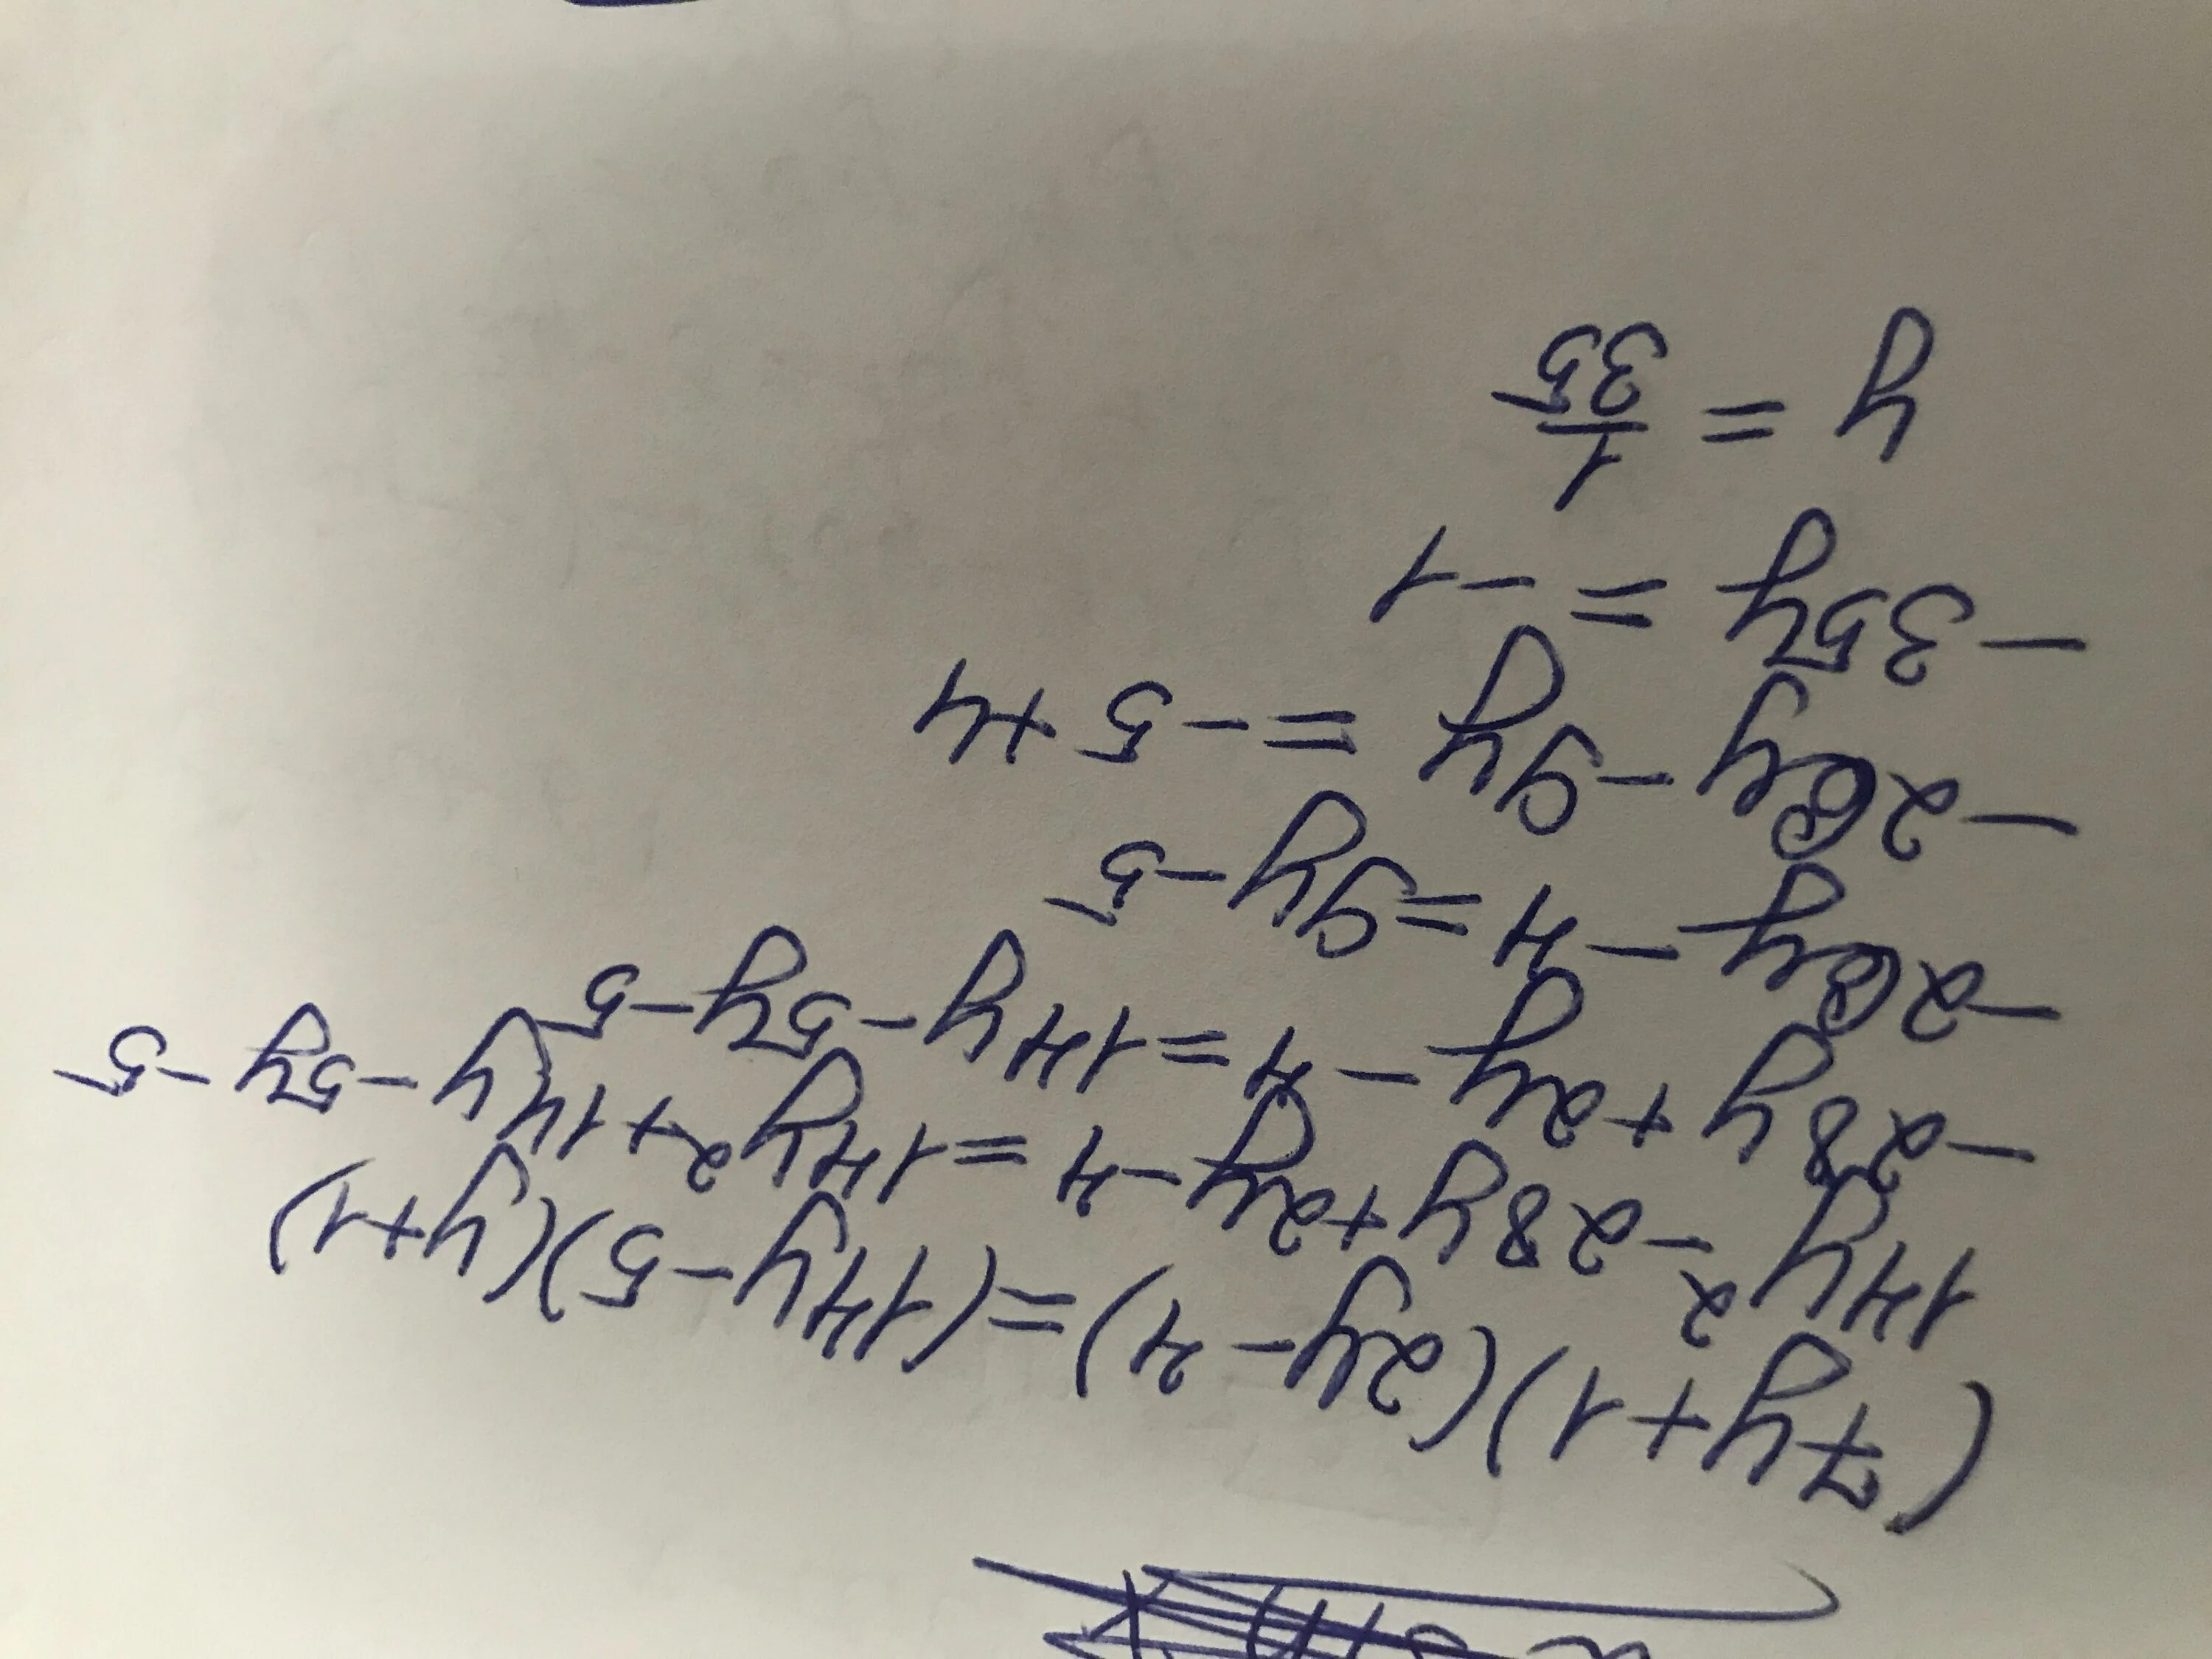 (7y+1)(2y-4)=(14y-5)(y+1)
14y²-28y+2y-4=14y²+14y-5y-5
-28y+2y-4=14y-5y-5
-26y-4=9y-5
-26y-9y=-5+4
-35y=-1
y=1/35